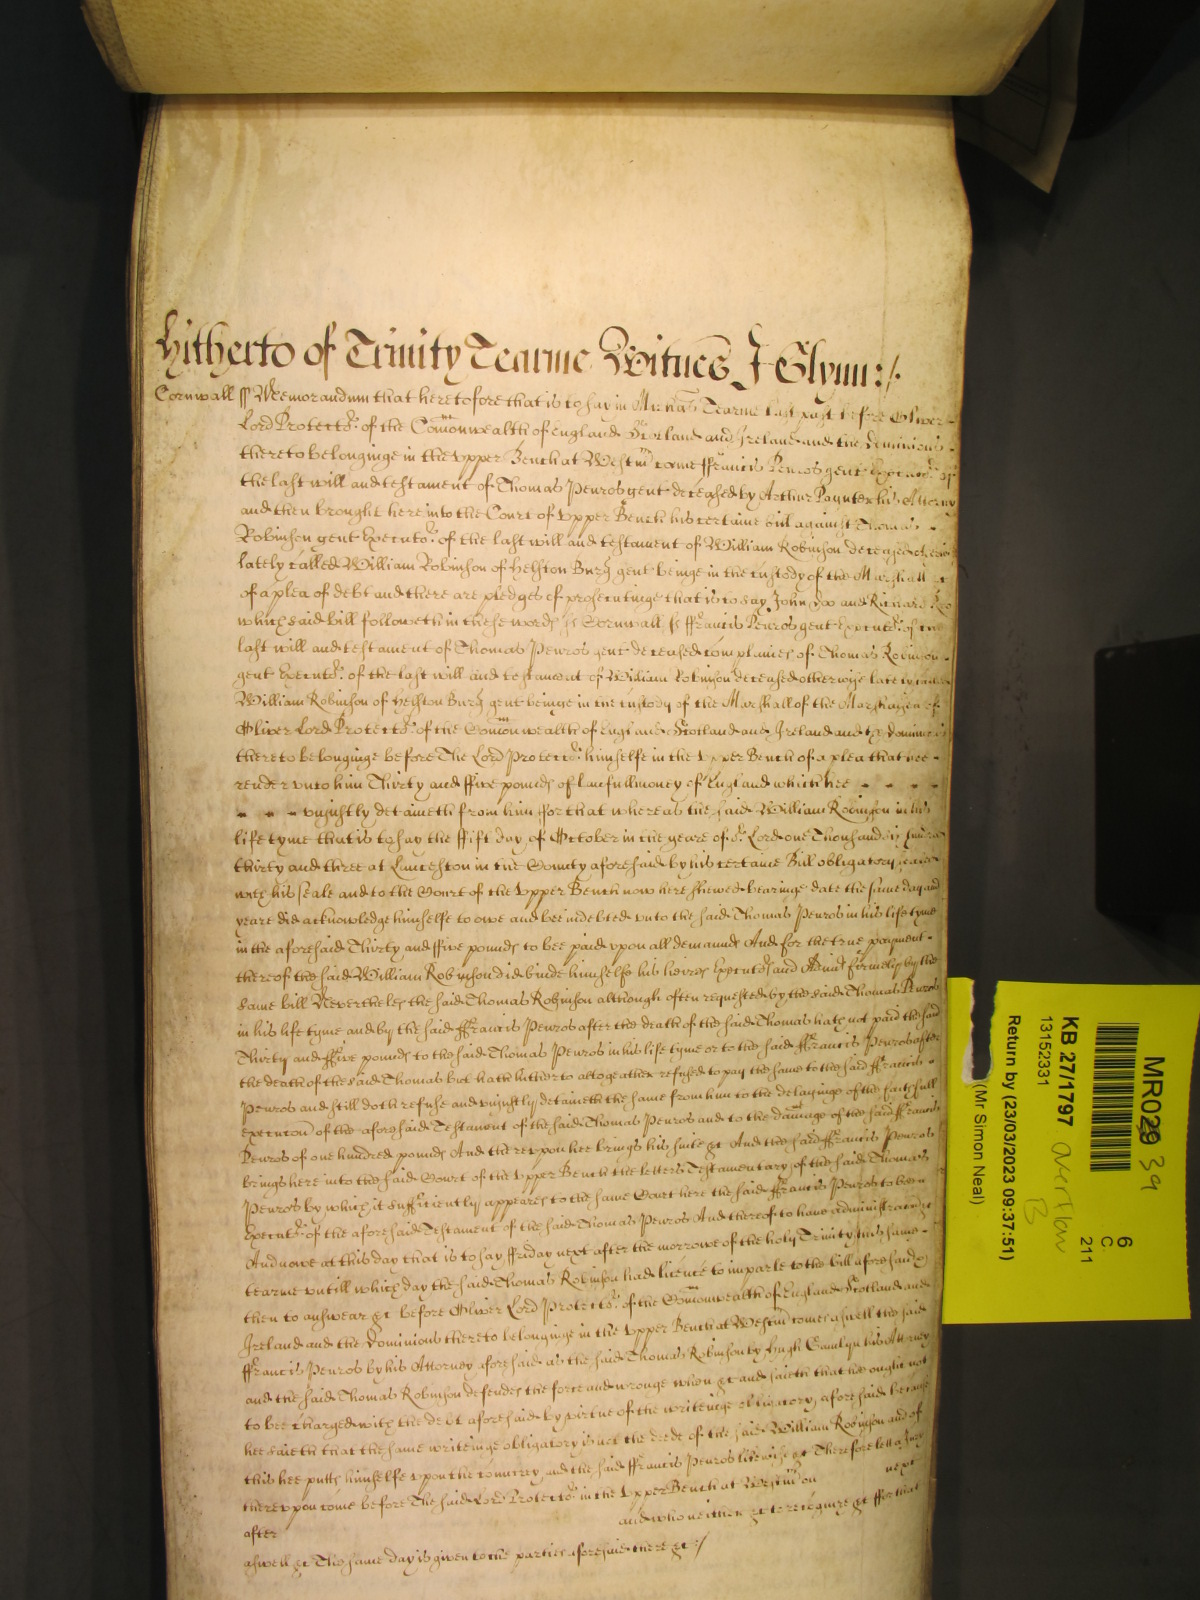 Hitherto of Trinity Tearme Witnes J Glynn:/.
Cornwall ss Memorandum that heretofore that is to say in Michas Tearme last past before Oliver
Lord Protector of the Comonwealth of England Scotland and Ireland and the Dominions
thereto belonginge in the vpper Bench at Westm came ffrancis Penros gent Executor of
the last will and testament of Thomas Penros gent deceased by Arthur Poynter his Attorny
and then brought here into the Court of vpper Bench his certaine bill against Thomas
Robinson gent Executor of the last will and testament of William Robinson deceased otherwise
lately called William Robinson of Helston Burg gent beinge in the custody of the Marshall &c
of a plea of debt and there are pledges of prosecutinge that is to say John Doe and Richard Roe
which said bill followeth in these words ss Cornwall ss ffrancis Penros gent Executor of the
last will and testament of Thomas Penros gent deceased complaines of Thomas Robinson
gent Executor of the last will and testament of William Robinson deceased otherwise lately called
William Robinson of Helston Burg gent beinge in the custody of the Marshall of the Marshalsea of
Oliver Lord Protector of the Comonwealth of England Scotland and Ireland and the Dominions
thereto belonginge before The Lord Protector himselfe in the Vpper Bench of a plea that hee
render vnto him Thirty and ffive pounds of lawfull money of England which hee
vniustly detaineth from him ffor that whereas the said William Robinson in his
life tyme that is to say the ffift day of October in the yeare of or Lord one Thousand six hundred
thirty and three at Lanceston in the County aforesaid by his certaine Bill obligatory sealed
with his seale and to the Court of the Vpper Bench now here shewed bearinge date the same day and
yeare did acknowledge himselfe to owe and bee indebted vnto the said Thomas Penros in his life tyme
in the aforesaid Thirty and ffive pounds to bee paid vpon all demaunds And for the true payment
thereof the said William Robinson did binde himselfe his heires Executors and Admts firmely by the
same bill Neverthelesse the said Thomas Robinson although often requested by the said Thomas Penros
in his life tyme and by the said ffrancis Penros after the death of the said Thomas hath not paid the said
Thirty and ffive pounds to the said Thomas Penros in his life tyme or to the said ffrancis Penros after
the death of the said Thomas but hath hitherto altogeather refused to pay the same to the said ffrancis
Penros and still doth refuse and vniustly detaineth the same from him to the delayinge of the faithfull
execucon of the aforesaid Testament of the said Thomas Penros and to the damage of the said ffrancis
Penros of one hundred pounds And therevpon hee brings his suite &c And the said ffrancis Penros
brings here into the said Court of the Vpper Bench the letters Testamentary of the said Thomas
Penros by which it sufficiently appeares to the same Court here the said ffrancis Penros to been
Executor of the aforesaid Testament of the said Thomas Penros And thereof to have administracon &c
And nowe at this day that is to say ffriday next after the morrowe of the holy Trinity this same
tearme vntill which day the said Thomas Robinson had licence to imparle to the bill aforesaid &
then to answear &c before Oliver Lord Protector of the Comonwealth of England Scotland and
Ireland and the Dominions thereto belonginge in the Vpper Bench at Westm comes aswell the said
ffrancis Penros by his Attorney aforesaid as the said Thomas Robinson by Hugh his Attorney
and the said Thomas Robinson defendes the force and wronge when &c and saieth that hee ought not
to bee charged with the debt aforesaid by virtue of the writeinge obligatory aforesaid because
hee saieth that the same writeinge obligatory is not the deede of the said William Robinson and of
this hee putts himselfe vpon the countrey and the said ffrancis Penros likewise &c Therefore lett a Jury
therevpon come before The said Lord Protector in the Vpper Bench at Westm on next
after and who neither &c to recognize &c ffor that
aswell &c The same day is given to the parties aforesaid there &c :/
MR029 39
6
C
211
KB 27/1797 Overflow
B
13152331
Return by (23/03/2023 09:37:51)
(Mr Simon Neal)